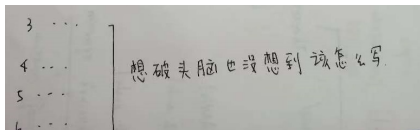 3 ...
4 ... 想破头脑也没想到该怎么写.
5 ...